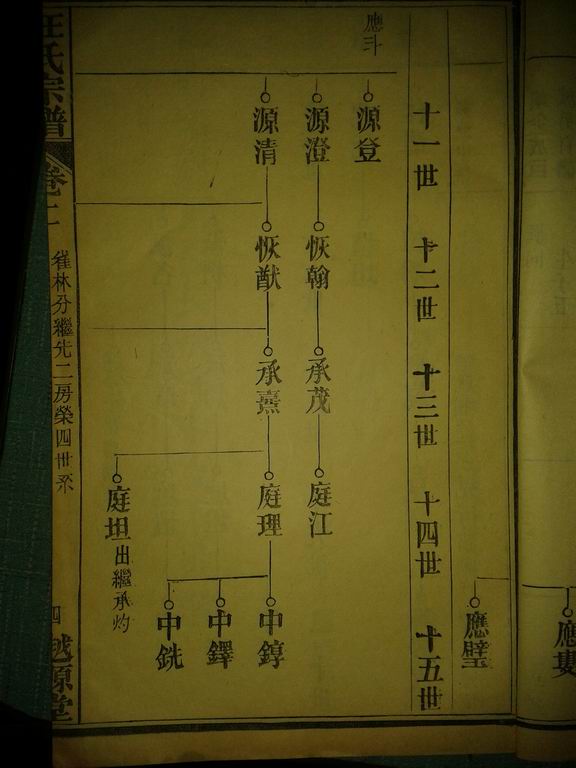 應婁
應璧
十一世
十二世
十三世
十四世
十五世
應斗
源登
源澄
源清
恢翰
恢猷
承茂
承熹
庭江
庭理
庭坦出繼承灼
中錞
中鐸
中銑
汪氏宗譜
卷二
雀林分繼先二房榮四世系
四
越原堂